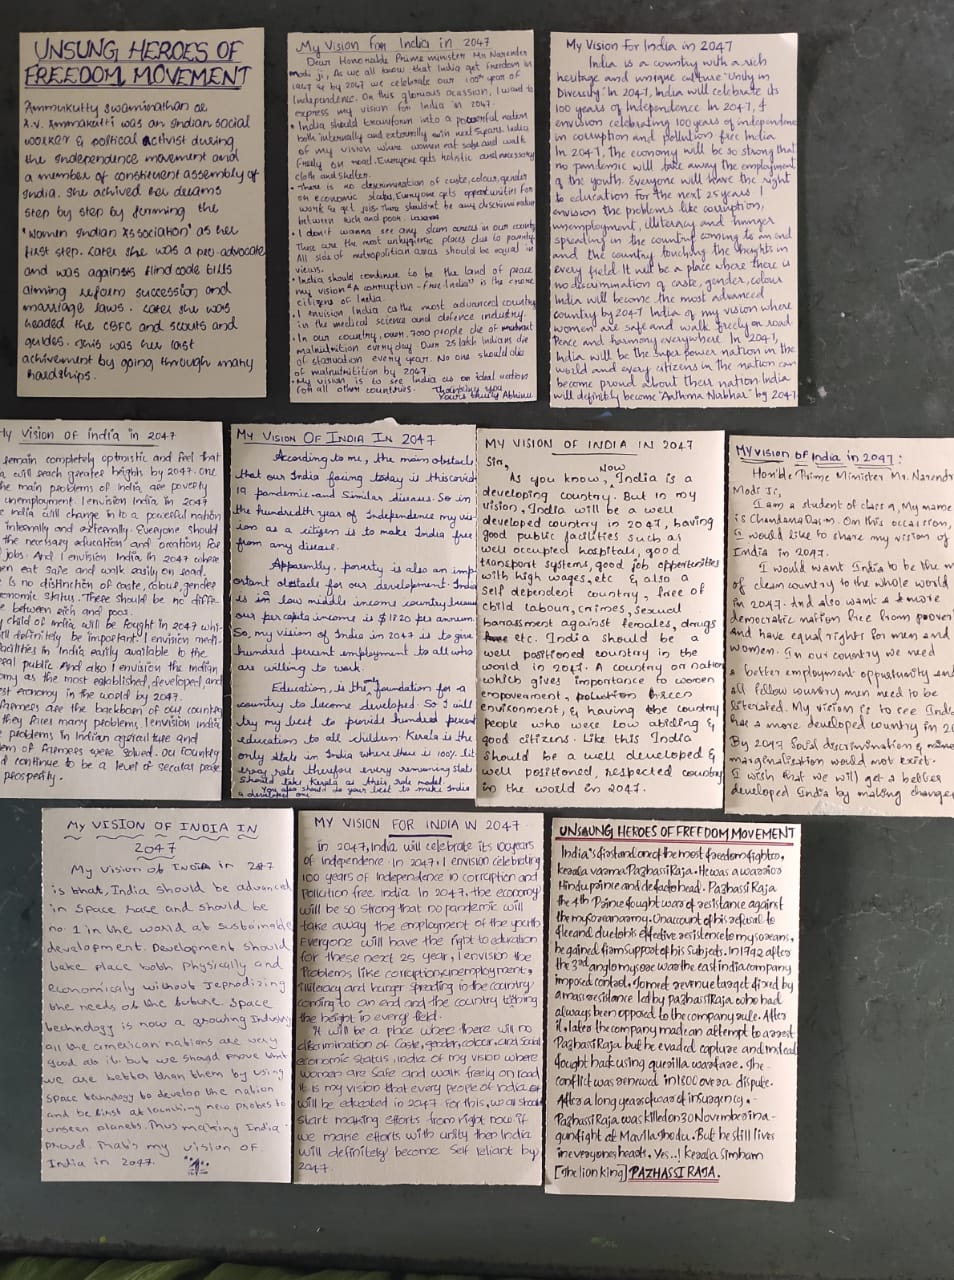 UNSUNG HEROES OF
FREEDOM MOVEMENT
Ammukutty Swaminathan or
A.V. Ammakutti was an Indian social
worker & political activist during
the independence movement and
a member of constituent assembly of
India. She achived her dreams
step by step by forming the
"Women Indian Association" as her
first step. Later she was a pro-advocate
and was againsts Hind code bills
aiming reform succession and
marriage laws. Later she was
headed the CBFC and scouts and
guides. This was her last
achivement by going through many
hardships.
My Vision for India in 2047
Dear Honorable Prime minister Mr. Narender
Modi ji, As we all know that India get freedom in
1947 & by 2047 we celebrate our 100th year of
Independence. On this glorious ocassion, I want to
express my vision for India in 2047.
• India should transform into a powerful nation
both internally and externally with next 5 years. India
of my vision where women eat safe and walk
freely on road. Everyone gets holistic and necessary
cloth and shelter.
• There is no descrimination of caste, colour, gender
or economic status, Everyone gets opportunities for
work & get jobs. There shouldn't be any discrimination
between rich and poor.
• I don't wanna see any slum areas in our country
These are the most unhygenic places due to poverty.
All side of metropolitian areas should be equal in
views.
• India should continue to be the land of peace
my vision "A corruption-free India" is the
citizens of India.
• I envision India as the most advanced country
in the medical science and defence industry.
• In our country, over 7000 people die of
malnutrition everyday. Over 25 lakh Indians die
of starvation every year. No one should die
of malnutrition by 2047
• My vision is to see India as an ideal nation
for all other countries. Thanking you
Yours truly Abhinu
My Vision for India in 2047
India is a country with a rich
heritage and unique culture "Unity in
Diversity". In 2047, India will celebrate its
100 years of Independence. In 2047, I
envision celebrating 100 years of independence
in corruption and pollution free India
In 2047, The economy will be so strong that
no pandemic will take away the employment
of the youth. Everyone will have the right
to education for the next 25 years. I
envision the problems like corruption,
unemployment, illiteracy and hunger
spreading in the country coming to an end
and the country touching the heights in
every field. It will be a place where there is
no discrimination of caste, gender, colour
India will become the most advanced
country by 2047. India of my vision where
women are safe and walk freely on road
Peace and harmony everywhere. In 2047,
India will be the super power nation in the
world and every citizens in the nation can
become proud about their nation. India
will definitely become "Aathma Nabhar" by 2047
My Vision of india in 2047
remain completely optmistic and feel that
will reach greater heighs by 2047. One
the main problems of India are poverty
unemployment. I envision India in 2047
India will change in to a powerful nation
internally and externally. Everyone should
the necessary education and
jobs. And I envision India in 2047 where
en eat safe and walk easily on road.
is no distinction of caste, colour, gender
onomic status. There should be no diffe-
between rich and poor.
child of India will be fought in 2047 whi-
ll definitely be important. I envision medi-
facilities in India easily available to the
ral public And also I envision the Indian
omy as the most established, developed, and
st economy in the world by 2047.
farmers are the backbone of our country
they faces many problems. I envision India
problems in Indian agriculture and
em of farmers were solved. Our country
d continue to be a level of secular peace
prosperity.
My Vision Of India In 2047
According to me, the main obstacle
that our India facing today is this covid
19 pandemic and similar diseases. So in
the hundredth year of Independence my vis-
ion as a citizen is to make India free
from any disease.
Apparently, poverty is also an imp-
ortant obstacle for our development. India
is in a low middle income country because
our per capita income is $ 1720 per annum.
So, my vision of India in 2047 is to give
hundred percent employment to all who
are willing to work.
Education, is the only foundation for a
country to become developed. So I will
try my best to provide hundred percent
education to all children. Kerala is the
only state in India where there is 100% lit
eracy rate therefore every remaining state
should take Kerala as their role model.
You also should do your best to make India
a developed one.
MY VISION OF INDIA IN 2047
Sir,
As you know, Now India is a
developing country. But in my
vision, India will be a well
developed country in 2047, having
good public facilities such as
well occupied hospitals, good
transport systems, good job opportunities
with high wages, etc & also a
self dependent country, free of
child labour, crimes, sexual
harassment against females, drugs
etc. India should be a
well positioned country in the
world in 2047. A country or nation
which gives importance to women
empowerment, pollution green
environment, & having the country
people who were low abiding &
good citizens. Like this India
should be a well developed &
well positioned, respected country
in the world in 2047.
My vision of India in 2047:
Hon'ble Prime Minister Mr. Narendr
Modi Ji,
I am a student of class 9, My name
is Chandana. On this occasion,
I would like to share my vision of
India in 2047.
I would want India to be the m
of clean country to the whole world
in 2047. And also want a more
democratic nation free from pover
and have equal rights for men and
women. In our country we need
a better employment opportunity and
all fellow country men need to be
literated. My vision is to see India
has a more developed country in 20
By 2047 Social discrimination &
marginalisation would not exist.
I wish that we will get a better
developed India by making changes
My VISION OF INDIA IN
2047
My Vision of India in 2047
is that, India should be advanced
in Space race and should be
no: 1 in the world at sustainable
development. Development should
take place both physically and
economically without jeprodizing
the needs of the future. Space
technology is now a growing Industry
all the american nations are very
good at it. but we should prove that
we are better than them by using
space technology to develop the nation
and be first at launching new probes to
unseen planets. Thus making India
proud. That's my vision of
India in 2047.
MY VISION FOR INDIA IN 2047
In 2047, India will celebrate its 100 years
of Independence. In 2047, I envision celebrating
100 years of Independence in corruption and
Pollution free India. In 2047, the economy
will be so strong that no pandemic will
take away the employment of the youth.
Everyone will have the right to education
for these next 25 year, I envision the
Problems like corruption, unemployment,
illiteracy and hunger spreading in the country
coming to an end and the country tching
the height in every field.
It will be a place where there will no
discrimination of Caste, gender, colour, and Social
economic status, India of my vision where
women are safe and walk freely on road
It is my vision that every people of india
will be educated in 2047. For this, we all should
start making efforts from right now if
we make efforts with unity than India
will definitely become Self reliant by
2047.
UNSUNG HEROES OF FREEDOM MOVEMENT
India's first and one of the most freedom fighter,
kerala varma Pazhassi Raja. He was a warrior
Hindu prince and defacto head. Pazhassi Raja
the 4th Prince fought war of resistance against
the mysorean army. On account of his refusal to
flee and due to his effective resistence to mysoreans,
he gained firm support of his subjects. In 1792 after
the 3rd anglo mysore war the east india company
imposed control. To met revenue target fixed by
a mass resistance led by Pazhassi Raja who had
always been opposed to the company rule. After
it, later the company made an attempt to arrest
Pazhassi Raja but he evaded capture and instead
fought back using guerilla warfare. The
conflict was renewed in 1800 over a dispute.
After a long years of war of insurgency,
Pazhassi Raja was killed on 30 November in a
gunfight at Mavila thodu. But he still lives
in everyones hearts. Yes..! Kerala Simham
[The lion king] PAZHASSI RAJA.